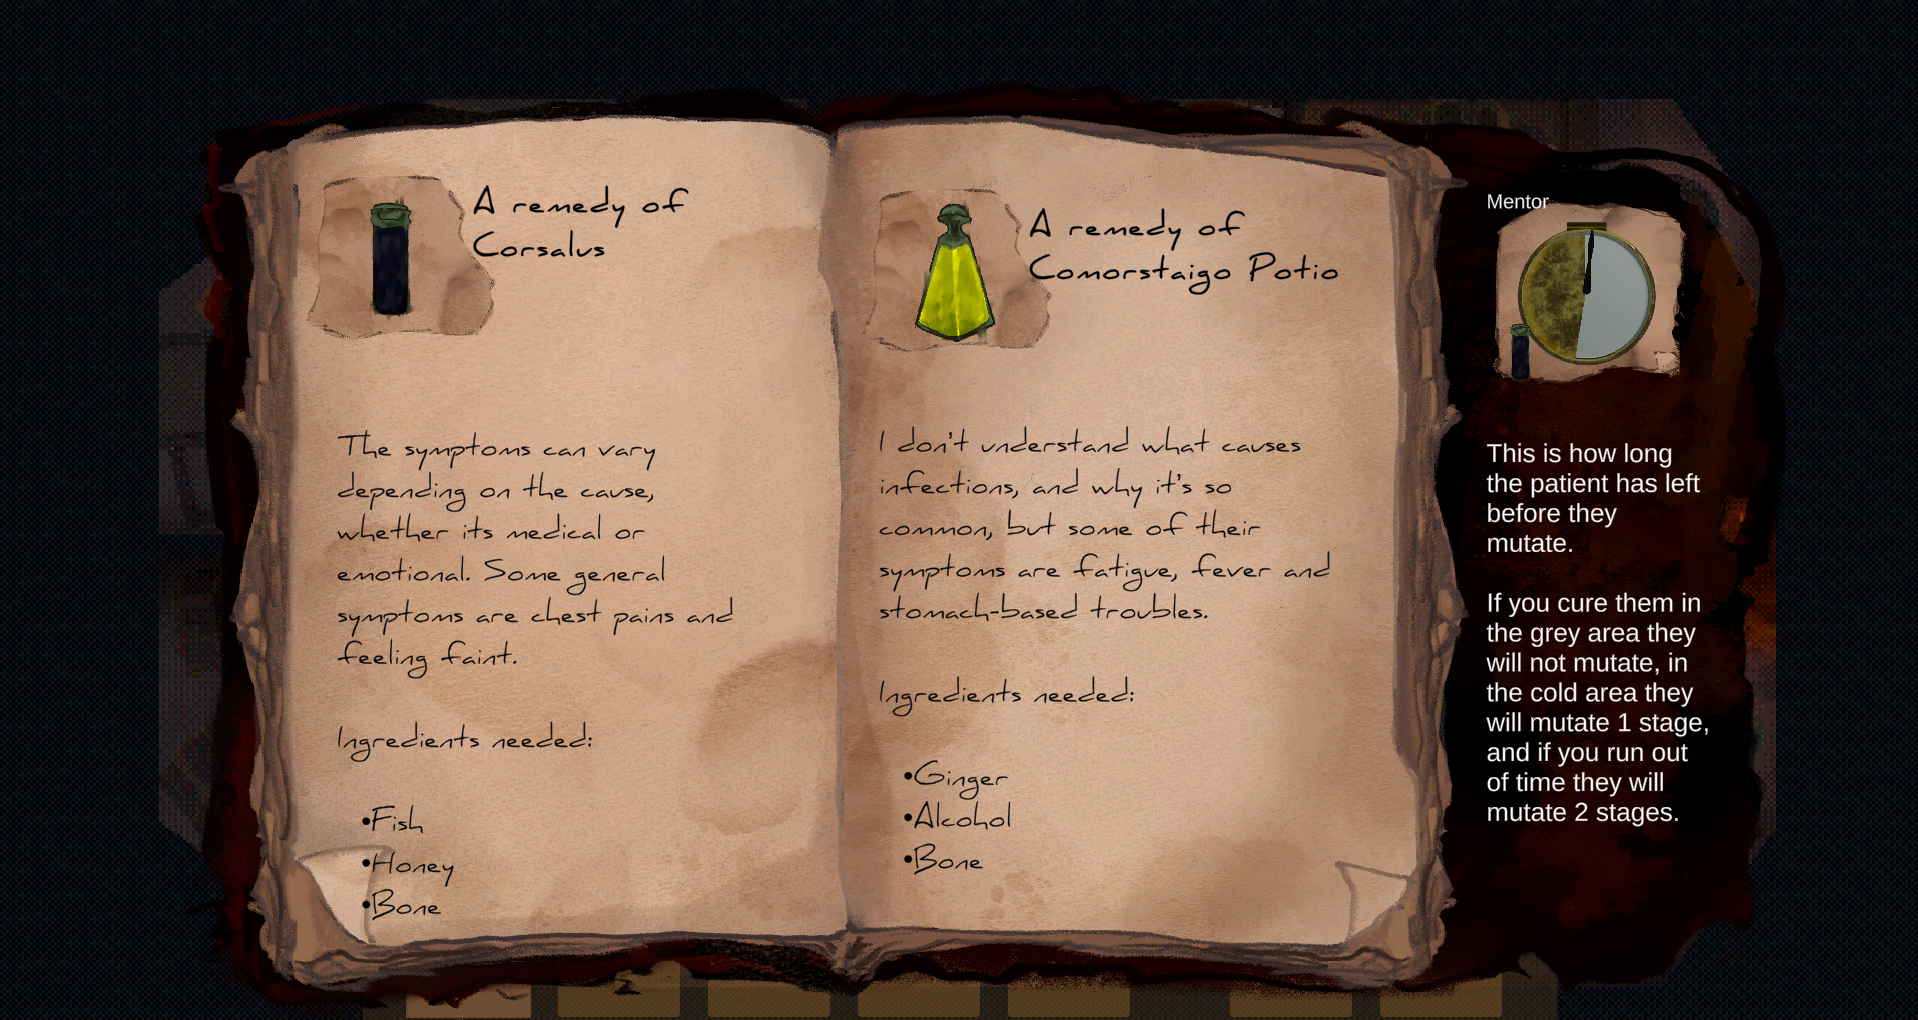 A remedy of
Corsalus
The symptoms can vary
depending on the cause,
whether its medical or
emotional. Some general
symptoms are chest pains and
feeling faint.
Ingredients needed:
•Fish
•Honey
•Bone
A remedy of
Comorstaigo Potio
I don't understand what causes
infections, and why it's so
common, but some of their
symptoms are fatigue, fever and
stomach-based troubles.
Ingredients needed:
•Ginger
•Alcohol
•Bone
Mentor
This is how long
the patient has left
before they
mutate.
If you cure them in
the grey area they
will not mutate, in
the cold area they
will mutate 1 stage,
and if you run out
of time they will
mutate 2 stages.